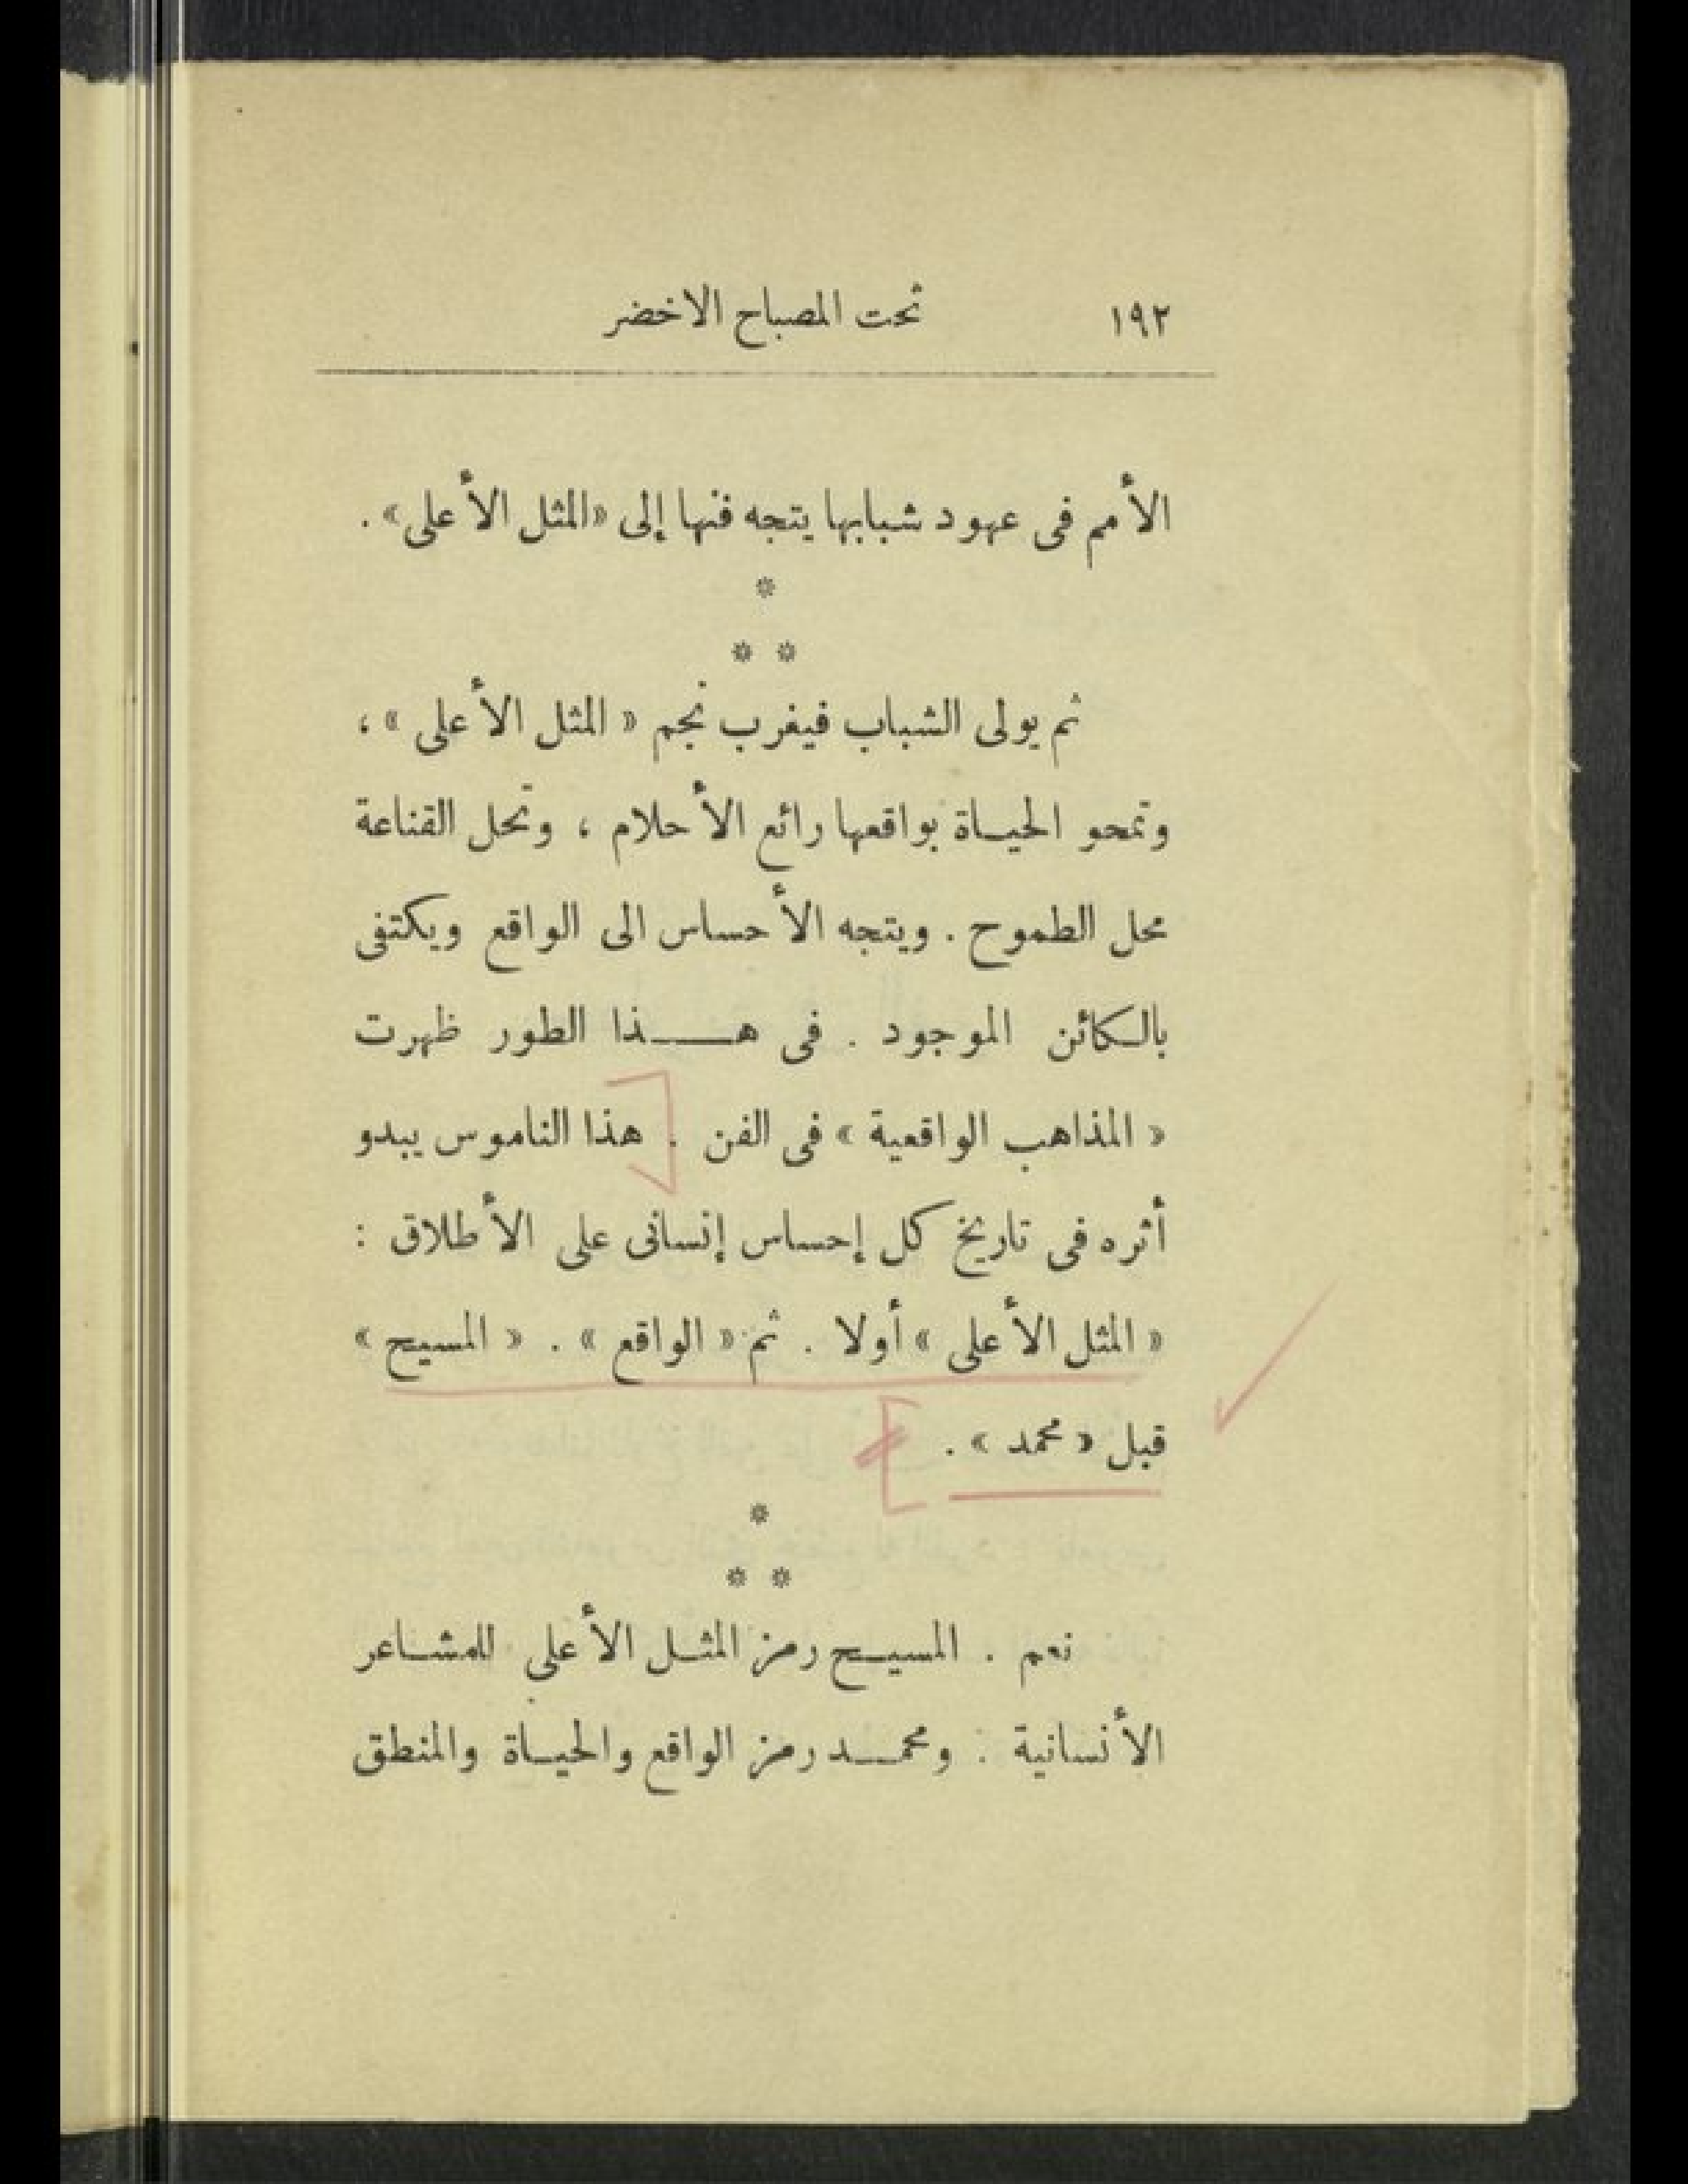 ١٩٢ تحت المصباح الاخضر
الأمم فى عهود شبابها يتجه فنها إلى «المثل الأعلى» .
*
* *
ثم يولى الشباب فيغرب نجم « المثل الأعلى » ،
وتمحو الحياة بواقعها رائع الأحلام ، وتحل القناعة
محل الطموح . ويتجه الأحساس الى الواقع ويكتفى
بالكائن الموجود . فى هـــذا الطور ظهرت
« المذاهب الواقعية » فى الفن . هذا الناموس يبدو
أثره فى تاريخ كل إحساس إنسانى على الأطلاق :
« المثل الأعلى » أولا . ثم « الواقع » . « المسيح »
قبل « محمد » .
*
* *
نعم . المسيـح رمز المثـل الأعلى للمشـاعر
الأنسانية : ومحمـــد رمز الواقع والحيـاة والمنطق